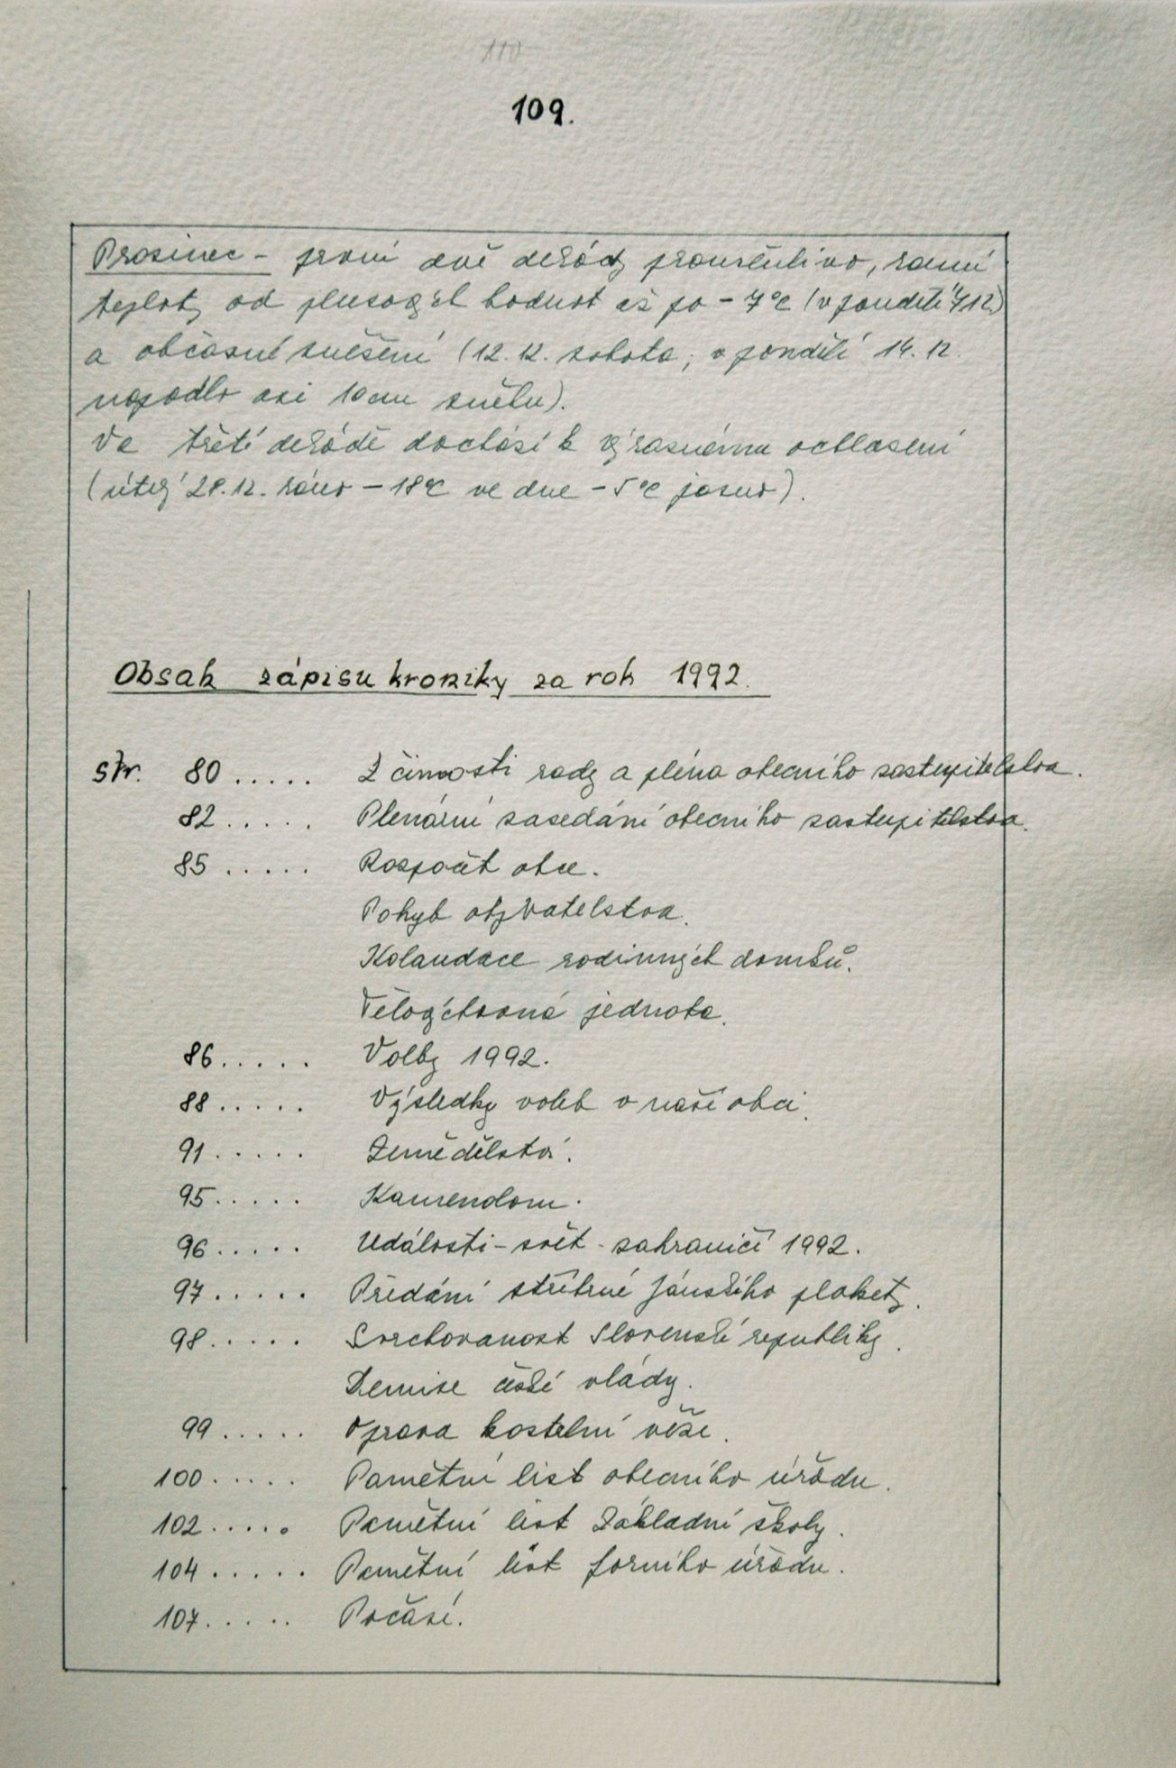 110
109.
Prosinec - první dvě dekády proměnlivo, ranní
teploty od plusových hodnot až po -7°C (v pondělí 7.12.)
a občasné sněžení (12.12. sobota, v pondělí 14.12.
napadlo asi 10 cm sněhu).
Ve třetí dekádě dochází k výraznému ochlazení
(úterý 28.12. ráno -18°C ve dne -5°C jasno).
Obsah zápisu kroniky za rok 1992.
str. 80..... Z činnosti rady a pléna obecního zastupitelstva.
82..... Plenární zasedání obecního zastupitelstva.
85..... Rozpočet obce.
Pohyb obyvatelstva.
Kolaudace rodinných domků.
Tělovýchovná jednota.
86..... Volby 1992.
88..... Výsledky voleb v naší obci.
91..... Zemědělství.
95..... Kamendom.
96..... Události - svět - zahraničí 1992.
97..... Předání stříbrné Jánského plakety.
98..... Svrchovanost Slovenské republiky.
Demise české vlády.
99..... Oprava kostelní věže.
100..... Pamětní list obecního úřadu.
102..... Pamětní list Základní školy.
104..... Pamětní list farního úřadu.
107..... Počasí.